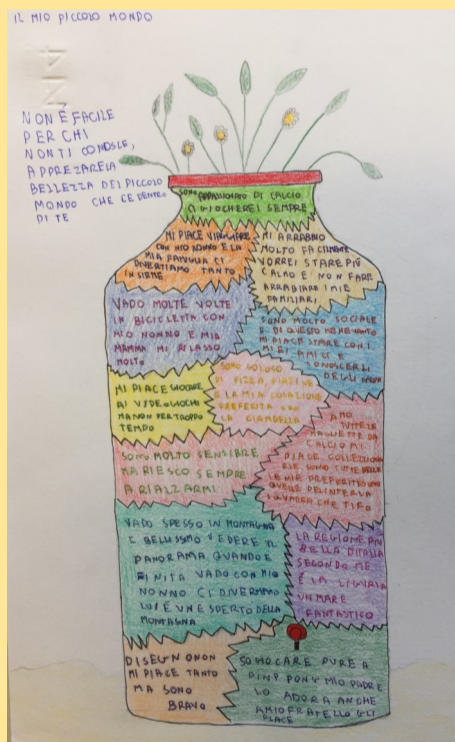 IL MIO PICCOLO MONDO
NON È FACILE
PER CHI
NON TI CONOSCE,
APPREZARE LA
BELLEZZA DEL PICCOLO
MONDO CHE C'E DENTRO
DI TE
SONO APPASSIONATO DI CALCIO
CI GIOCHEREI SEMPRE
MI PIACE VIAGGIARE
CON MIO NONNO E LA
MIA FAMIGLIA CI
DIVERTIAMO TANTO
INSIEME
MI ARRABBIO
MOLTO FACILMENTE
VORREI STARE PIÙ
CALMO E NON FARE
ARRABIARE I MIE
FAMILIARI
VADO MOLTE VOLTE
IN BICICLETTA CON
MIO NONNO E MIA
MAMMA MI RILASSO
MOLTO
SONO MOLTO SOCIALE
E DI QUESTO ME NE VANTO
MI PIACE STARE CON I
MIEI AMICI E
CONOSCERLI
DEGLI
MI PIACE GIOCARE
AI VIDEOGIOCHI
MA NON PER TROPPO
TEMPO
SONO GOLOSO
DI PIZZA,
E LA MIA COLAZIONE
PREFERITA
LA CIAMBELLA
AMO
TUTTE LE
MAGLIETTE DA
CALCIO MI
PIACE COLLEZIONA
RLE SONO TUTTE BELLE
LE MIE PREFERITE SONO
QUELLE DELINTER LA
SQUADRA CHE TIFO
SONO MOLTO SENSIBILE
MA RIESCO SEMPRE
A RIALZARMI
VADO SPESSO IN MONTAGNA
E BELLISSIMO VEDERE IL
PANORAMA QUANDO E
FINITA VADO CON MIO
NONNO CI DIVERTIAMO
LUI È UN ESPERTO DELLA
MONTAGNA
LA REGIONE PIÙ
BELLA D'ITALIA
SECONDO ME
È LA LIGURIA
UN MARE
FANTASTICO
DISEGNO NON
MI PIACE TANTO
MA SONO
BRAVO
SO GIOCARE PURE A
PING PONG MIO PADRE
LO ADORA ANCHE
A MIO FRATELLO GLI
PIACE